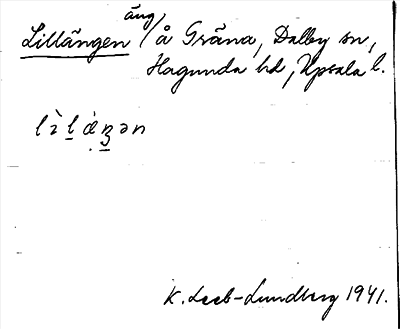 Lillängen äng / å Gräna, Dalby sn,
Hagunda hd, Upsala l.
lὶl ǽŋən
K. Leeb-Lundberg 1941.